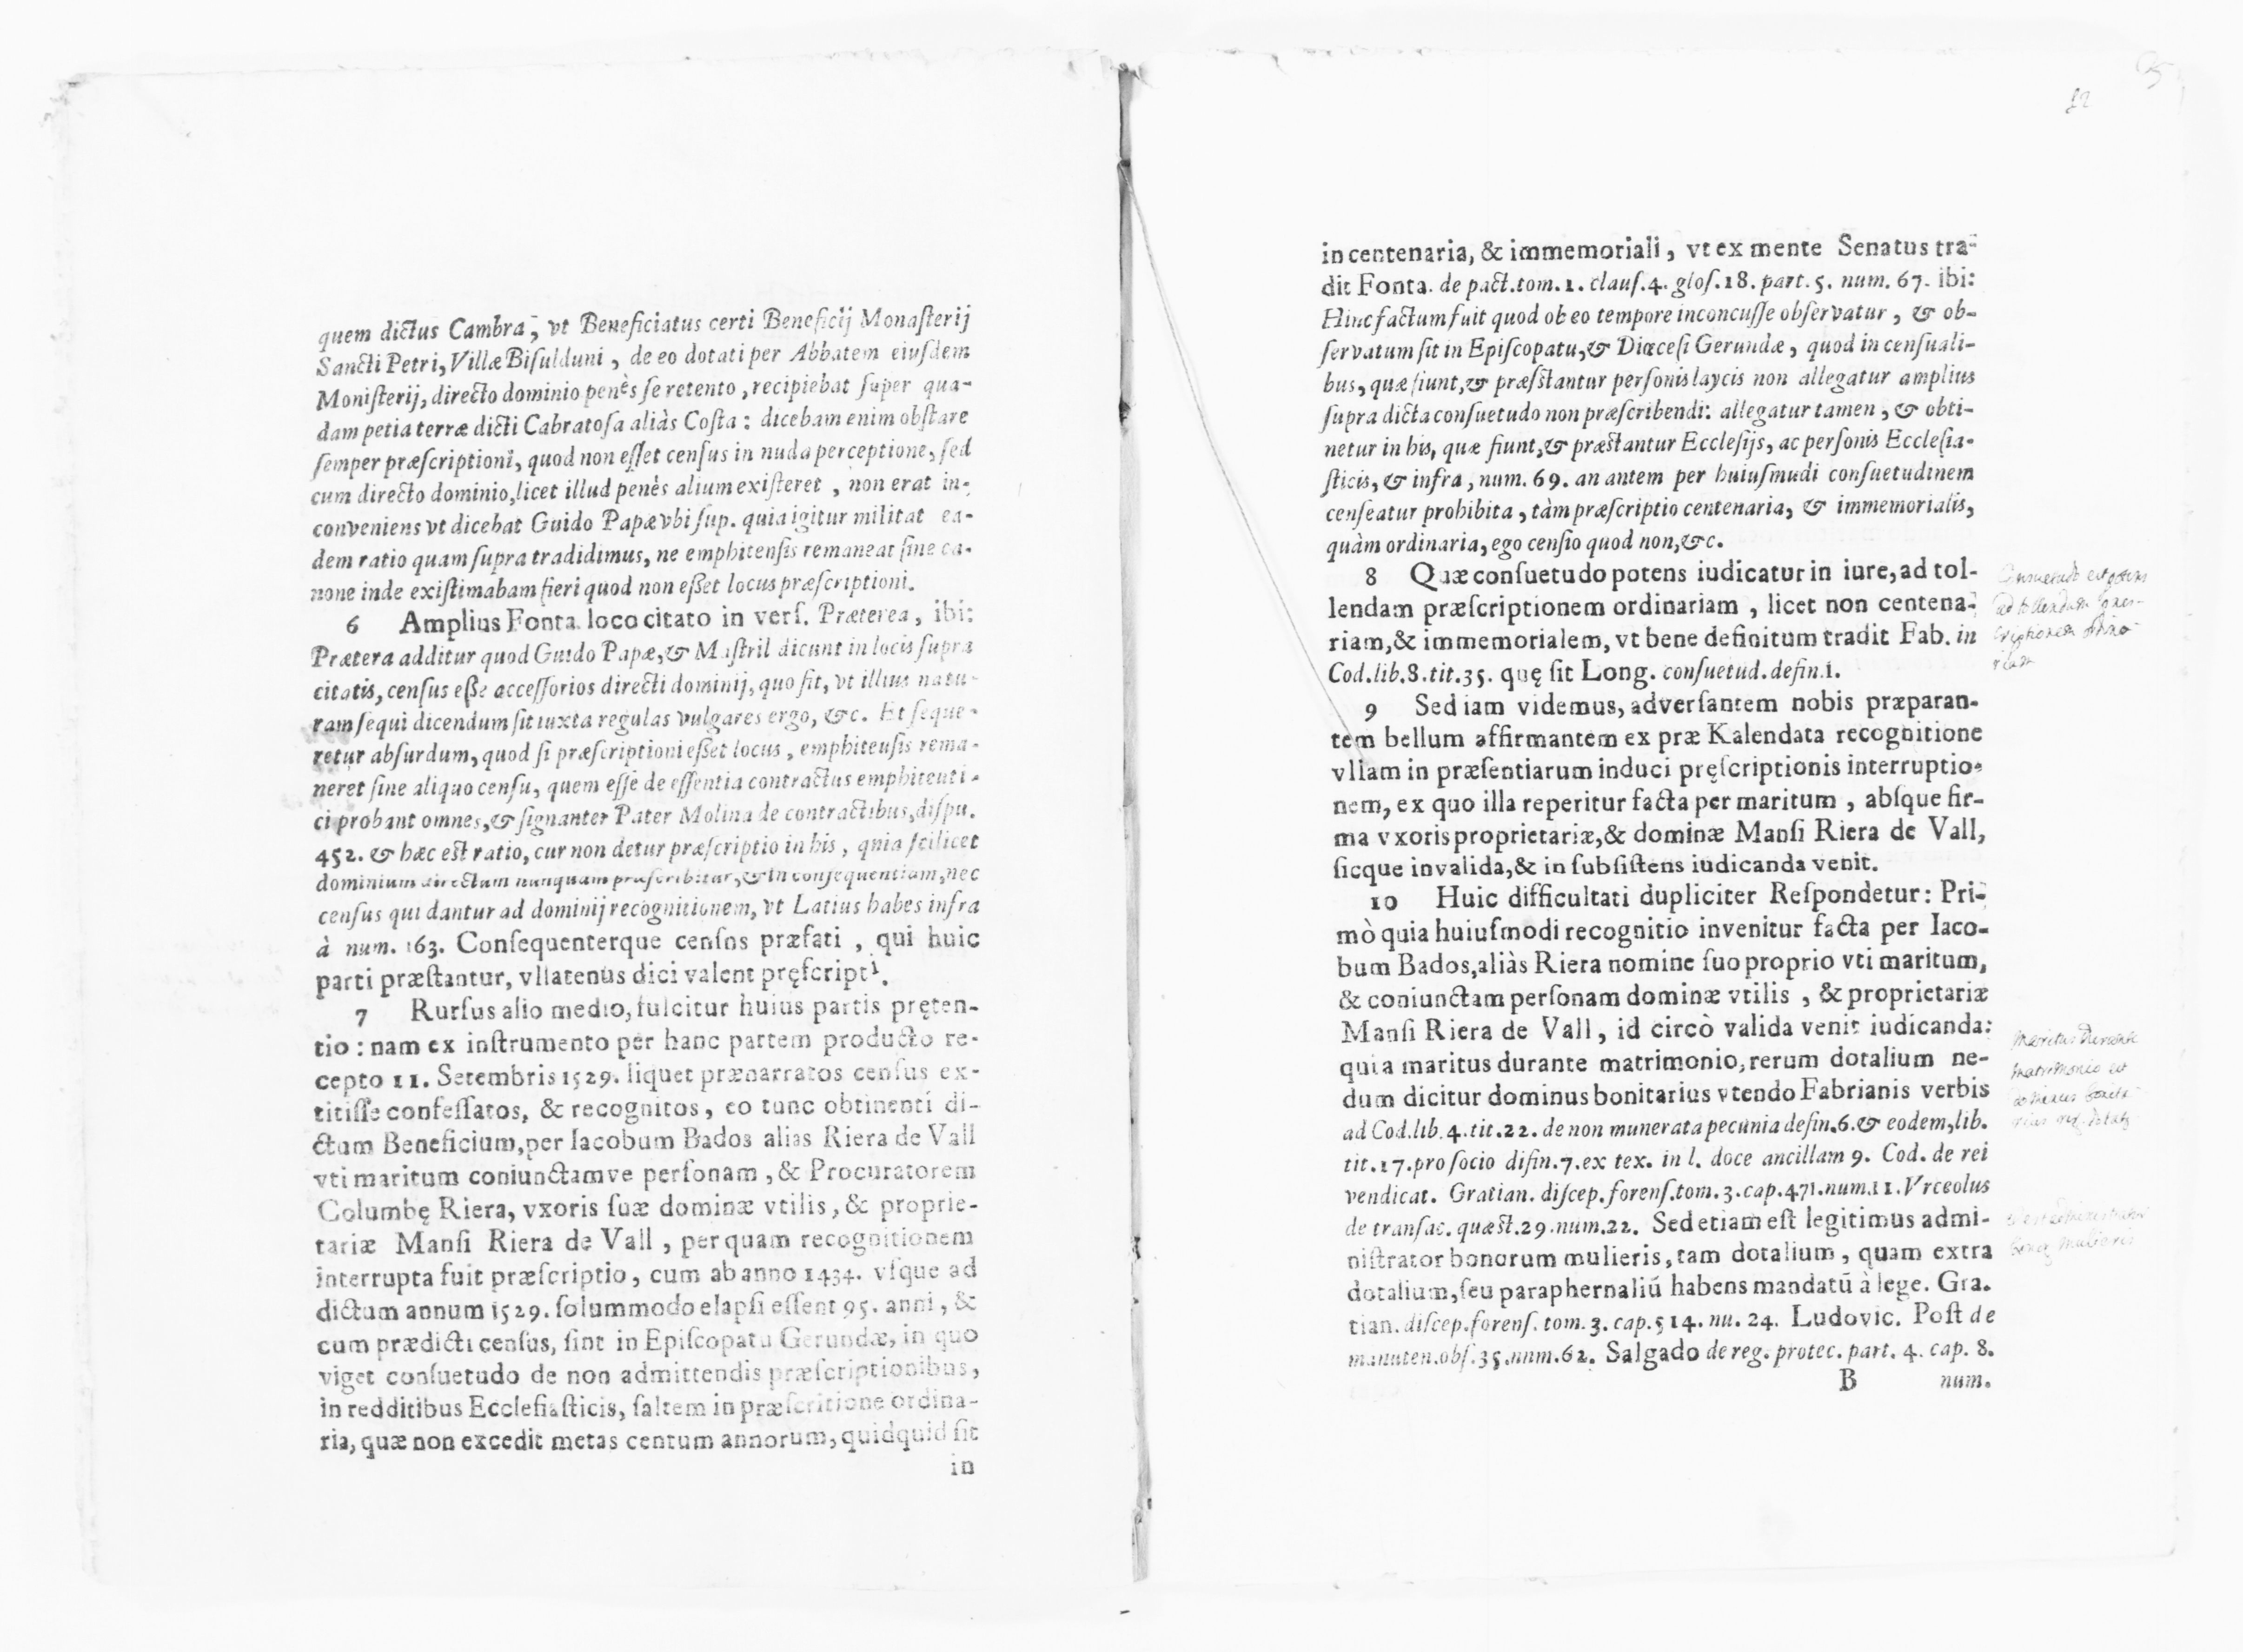 quem dictus Cambra, vt Beneficiatus certi Beneficij Monaſterij
Sancti Petri, Villæ Biſulduni, de eo dotati per Abbatem eiuſdem
Moniſterij, directo dominio penès ſe retento, recipiebat ſuper qua-
dam petia terræ dicti Cabratoſa aliàs Coſta: dicebam enim obſtare
ſemper præſcriptioni, quod non eſſet cenſus in nuda perceptione, ſed
cum directo dominio, licet illud penès alium exiſteret, non erat in-
conveniens vt dicebat Guido Papæ vbi ſup. quia igitur militat ea-
dem ratio quam ſupra tradidimus, ne emphitenſis remaneat ſine ca-
none inde exiſtimabam fieri quod non eßet locus præſcriptioni.
6 Amplius Fonta. loco citato in verſ. Præterea, ibi:
Prætera additur quod Guido Papæ, & Maſtril dicunt in locis ſupra
citatis, cenſus eße acceſſorios directi dominij, quo fit, vt illius natu-
ram ſequi dicendum ſit iuxta regulas vulgares ergo, &c. Et ſeque-
retur abſurdum, quod ſi præſcriptioni eßet locus, emphiteuſis rema-
neret ſine aliquo cenſu, quem eſſe de eſſentia contractus emphiteuti-
ci probant omnes, & ſignanter Pater Molina de contractibus, diſpu.
452. & hæc est ratio, cur non detur præſcriptio in his, quia ſcilicet
dominium directum nunquam præſcribitur, & in conſequentiam, nec
cenſus qui dantur ad dominij recognitionem, vt Latius habes infra
à num. 163. Conſequenterque cenſos præfati, qui huic
parti præſtantur, vllatenus dici valent pręſcripti.
7 Rurſus alio medio, fulcitur huius partis pręten-
tio: nam ex inſtrumento per hanc partem producto re-
cepto 11. Setembris 1529. liquet prænarratos cenſus ex-
titiſſe confeſſatos, & recognitos, eo tunc obtinenti di-
ctum Beneficium, per Iacobum Bados alias Riera de Vall
vti maritum coniunctamve perſonam, & Procuratorem
Columbę Riera, vxoris ſuæ dominæ vtilis, & proprie-
tariæ Manſi Riera de Vall, per quam recognitionem
interrupta fuit præſcriptio, cum ab anno 1434. vſque ad
dictum annum 1529. ſolummodo elapſi eſſent 95. anni, &
cum prædicti cenſus, ſint in Epiſcopatu Gerundæ, in quo
viget conſuetudo de non admittendis præſcriptionibus,
in redditibus Eccleſiaſticis, ſaltem in præſcritione ordina-
ria, quæ non excedit metas centum annorum, quidquid ſit
in
in centenaria, & immemoriali, vt ex mente Senatus tra-
dit Fonta. de pact. tom. 1. clauſ. 4. gloſ. 18. part. 5. num. 67. ibi:
Hinc factum fuit quod ob eo tempore inconcuſſe obſervatur, & ob-
ſervatum ſit in Epiſcopatu, & Diœceſi Gerundæ, quod in cenſuali-
bus, quæ fiunt, & præſtantur perſonis laycis non allegatur amplius
ſupra dicta conſuetudo non præſcribendi: allegatur tamen, & obti-
netur in his, quæ fiunt, & præſtantur Eccleſijs, ac perſonis Eccleſia-
ſticis, & infra, num. 69. an antem per huiuſmudi conſuetudinem
cenſeatur prohibita, tàm præſcriptio centenaria, & immemorialis,
quàm ordinaria, ego cenſio quod non, &c.
8 Quæ conſuetudo potens iudicatur in iure, ad tol-
lendam præſcriptionem ordinariam, licet non centena-
riam, & immemorialem, vt bene definitum tradit Fab. in
Cod. lib. 8. tit. 35. quę ſit Long. conſuetud. defin. 1.
9 Sed iam videmus, adverſantem nobis præparan-
tem bellum affirmantem ex præ Kalendata recognitione
vllam in præſentiarum induci pręſcriptionis interruptio-
nem, ex quo illa reperitur facta per maritum, abſque fir-
ma vxoris proprietariæ, & dominæ Manſi Riera de Vall,
ſicque invalida, & in ſubſiſtens iudicanda venit.
10 Huic difficultati dupliciter Reſpondetur: Pri-
mò quia huiuſmodi recognitio invenitur facta per Iaco-
bum Bados, aliàs Riera nomine ſuo proprio vti maritum,
& coniunctam perſonam dominæ vtilis, & proprietariæ
Manſi Riera de Vall, id circò valida venit iudicanda:
quia maritus durante matrimonio, rerum dotalium ne-
dum dicitur dominus bonitarius vtendo Fabrianis verbis
ad Cod. lib. 4. tit. 22. de non munerata pecunia defin. 6. & eodem, lib.
tit. 17. pro ſocio difin. 7. ex tex. in l. doce ancillam 9. Cod. de rei
vendicat. Gratian. diſcep. forenſ. tom. 3. cap. 471. num. 11. Vrceolus
de tranſac. quæst. 29. num. 22. Sed etiam eſt legitimus admi-
niſtrator bonorum mulieris, tam dotalium, quam extra
dotalium, ſeu paraphernaliū habens mandatū à lege. Gra.
tian. diſcep. forenſ. tom. 3. cap. 514. nu. 24. Ludovic. Poſt de
manuten. obſ. 35. num. 62. Salgado de reg. protec. part. 4. cap. 8.
B num.
Consuetudo est potens
ad tollendam
maritus durante
matrimonio est